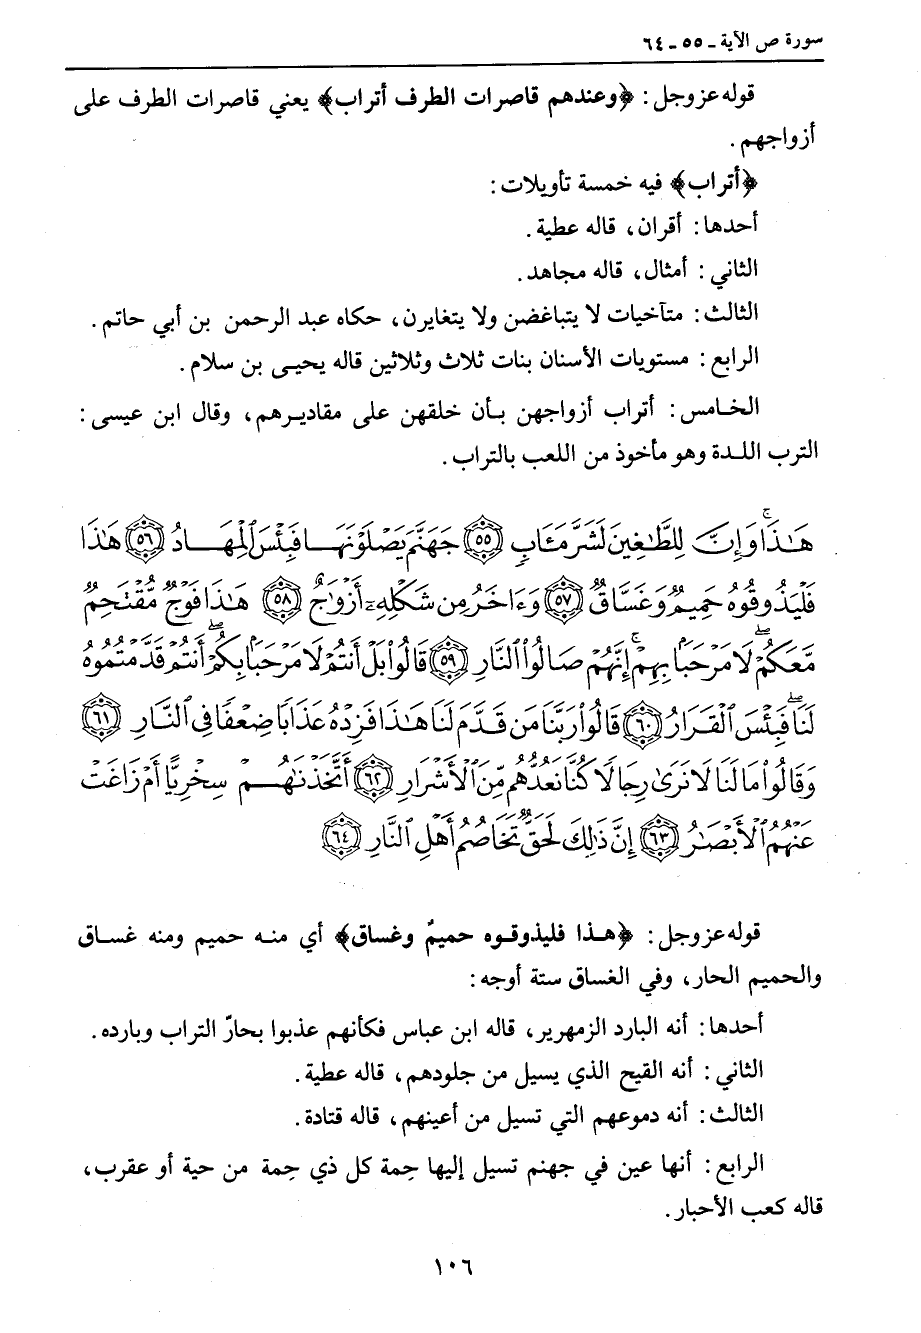 سورة ص الآية ـ ٥٥ ـ ٦٤
قوله عز وجل: ﴿وعندهم قاصرات الطرف أتراب﴾ يعني قاصرات الطرف على
أزواجهم.
﴿أتراب﴾ فيه خمسة تأويلات:
أحدها: أقران، قاله عطية.
الثاني: أمثال، قاله مجاهد.
الثالث: متآخيات لا يتباغضن ولا يتغايرن، حكاه عبد الرحمن بن أبي حاتم.
الرابع: مستويات الأسنان بنات ثلاث وثلاثين قاله يحيى بن سلام.
الخامس: أتراب أزواجهن بأن خلقهن على مقاديرهم، وقال ابن عيسى:
الترب اللدة وهو مأخوذ من اللعب بالتراب.
هَـٰذَا ۚ وَإِنَّ لِلطَّـٰغِينَ لَشَرَّ مَـَٔابٍ ٥٥ جَهَنَّمَ يَصْلَوْنَهَا فَبِئْسَ ٱلْمِهَادُ ٥٦ هَـٰذَا
فَلْيَذُوقُوهُ حَمِيمٌ وَغَسَّاقٌ ٥٧ وَءَاخَرُ مِن شَكْلِهِۦٓ أَزْوَٰجٌ ٥٨ هَـٰذَا فَوْجٌ مُّقْتَحِمٌ
مَّعَكُمْ ۖ لَا مَرْحَبًۢا بِهِمْ ۚ إِنَّهُمْ صَالُوا۟ ٱلنَّارِ ٥٩ قَالُوا۟ بَلْ أَنتُمْ لَا مَرْحَبًۢا بِكُمْ ۖ أَنتُمْ قَدَّمْتُمُوهُ
لَنَا ۖ فَبِئْسَ ٱلْقَرَارُ ٦٠ قَالُوا۟ رَبَّنَا مَن قَدَّمَ لَنَا هَـٰذَا فَزِدْهُ عَذَابًا ضِعْفًا فِى ٱلنَّارِ ٦١
وَقَالُوا۟ مَا لَنَا لَا نَرَىٰ رِجَالًا كُنَّا نَعُدُّهُم مِّنَ ٱلْأَشْرَارِ ٦٢ أَتَّخَذْنَـٰهُمْ سِخْرِيًّا أَمْ زَاغَتْ
عَنْهُمُ ٱلْأَبْصَـٰرُ ٦٣ إِنَّ ذَٰلِكَ لَحَقٌّ تَخَاصُمُ أَهْلِ ٱلنَّارِ ٦٤
قوله عز وجل: ﴿هذا فليذوقوه حميمٌ وغساق﴾ أي منه حميم ومنه غساق
والحميم الحار، وفي الغساق ستة أوجه:
أحدها: أنه البارد الزمهرير، قاله ابن عباس فكأنهم عذبوا بحارّ التراب وبارده.
الثاني: أنه القيح الذي يسيل من جلودهم، قاله عطية.
الثالث: أنه دموعهم التي تسيل من أعينهم، قاله قتادة.
الرابع: أنها عين في جهنم تسيل إليها حِمة كل ذي حِمة من حية أو عقرب،
قاله كعب الأحبار.
١٠٦